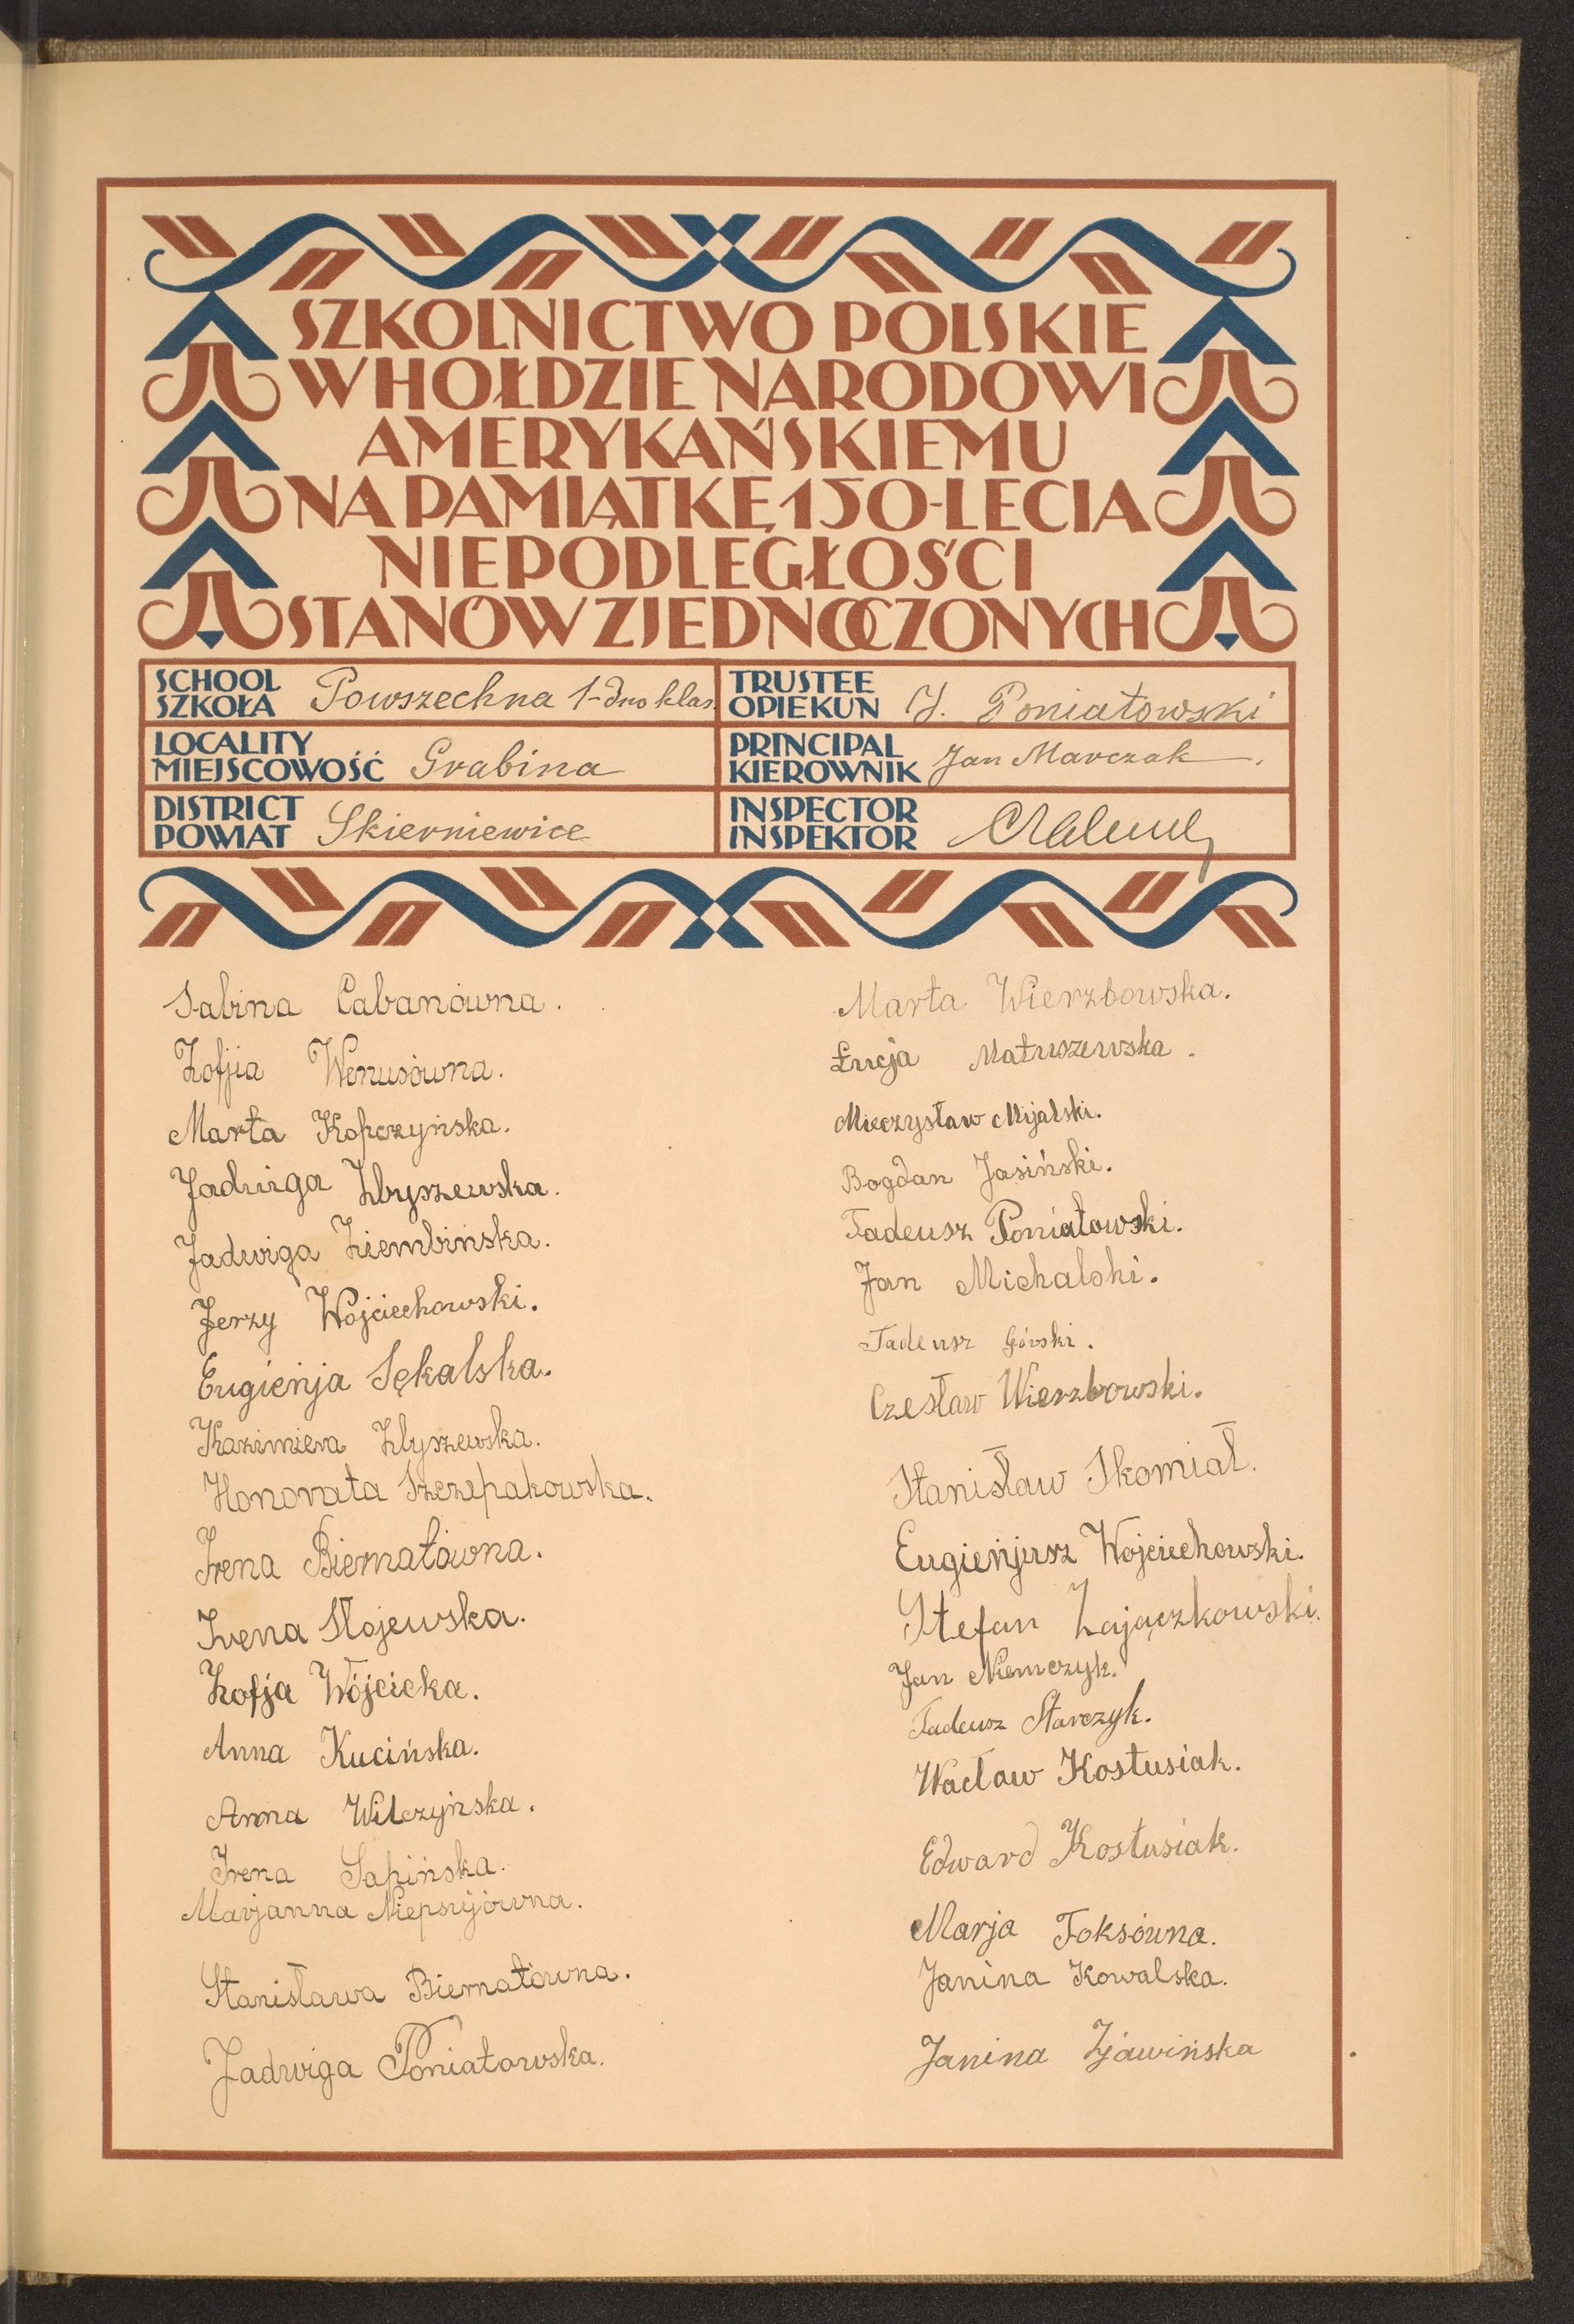 SZKOLNICTWO POLSKIE
W HOŁDZIE NARODOWI
AMERYKAŃSKIEMU
NA PAMIĄTKĘ 150-LECIA
NIEPODLEGŁOŚCI
STANÓW ZJEDNOCZONYCH
SCHOOL
SZKOŁA Powszechna 1-dno klas.
TRUSTEE
OPIEKUN J. Poniatowski
LOCALITY
MIEJSCOWOŚĆ Grabina
PRINCIPAL
KIEROWNIK Jan Marczak.
DISTRICT
POWIAT Skierniewice
INSPECTOR
INSPEKTOR
Sabina Cabanówna.
Zofjia Wenusówna.
Marta Kopczyńska.
Jadwiga Zbyszewska.
Jadwiga Ziembińska.
Jerzy Wojciechowski.
Eugienja Sękalska.
Kazimiera Zbyszewska.
Honorata Szczepakowska.
Irena Biernatówna.
Irena Słojewska.
Zofja Wójcicka.
Anna Kucińska.
Anna Wilczyńska.
Irena Sapińska.
Marjanna Niepsujówna.
Stanisława Biernatówna.
Jadwiga Poniatowska.
Marta Wierzbowska.
Łucja Matuszewska.
Mieczysław Mijalski.
Bogdan Jasiński.
Tadeusz Poniatowski.
Jan Michalski.
Tadeusz Górski.
Czesław Wierzbowski.
Stanisław Skomiał.
Eugienjusz Wojciechowski.
Stefan Zajączkowski.
Jan Niemczyk.
Tadeusz Starczyk.
Wacław Kostusiak.
Edward Kostusiak.
Marja Foksówna.
Janina Kowalska.
Janina Zjawińska